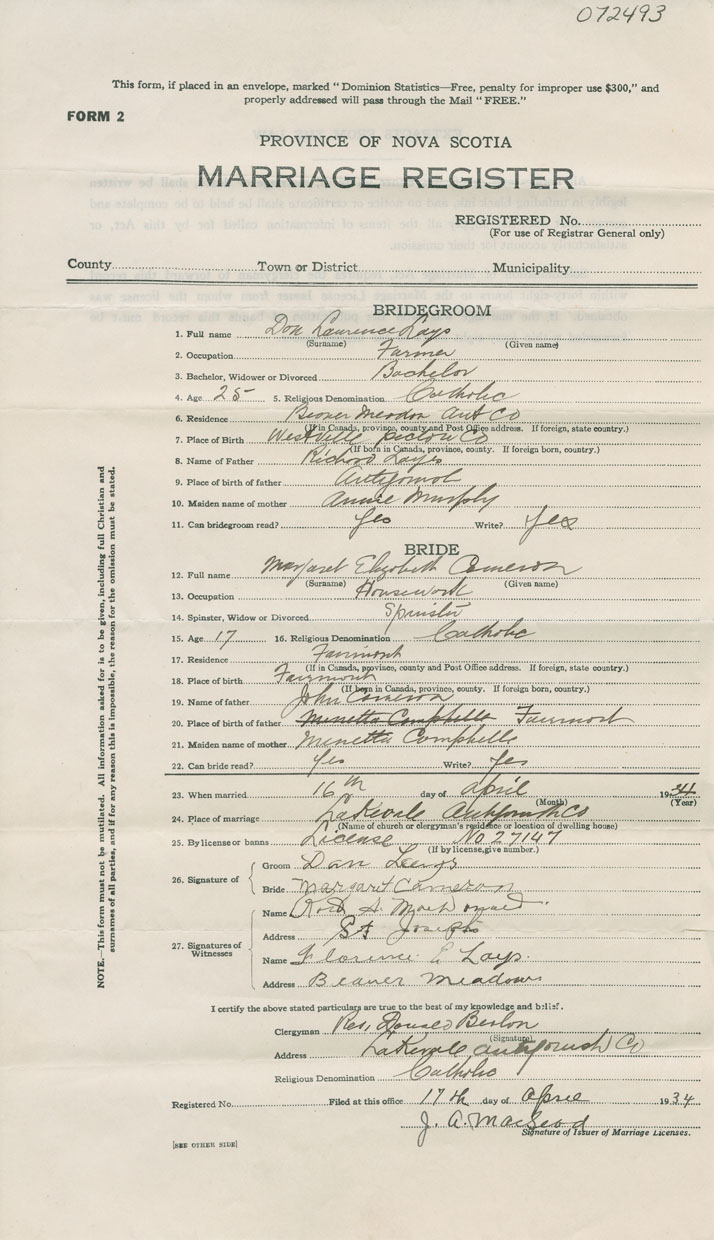 072493
This form, if placed in an envelope, marked "Dominion Statistics—Free, penalty for improper use $300," and
properly addressed will pass through the Mail "FREE."
FORM 2
PROVINCE OF NOVA SCOTIA
MARRIAGE REGISTER
REGISTERED No.
(For use of Registrar General only)
County Town or District Municipality
BRIDEGROOM
1. Full name Don Laurence Lays
(Surname) (Given name)
2. Occupation Farmer
3. Bachelor, Widower or Divorced Bachelor
4. Age 25 5. Religious Denomination Catholic
6. Residence Beaver Meadow Ant Co
(If in Canada, province, county and Post Office address. If foreign, state country.)
7. Place of Birth Westville Pictou Co
(If born in Canada, province, county. If foreign born, country.)
8. Name of Father Richard Layes
9. Place of birth of father
10. Maiden name of mother Annie Murphy
11. Can bridegroom read? Yes Write? Yes
BRIDE
12. Full name Margaret Elizabeth Cameron
(Surname) (Given name)
13. Occupation Housework
14. Spinster, Widow or Divorced Spinster
15. Age 17 16. Religious Denomination Catholic
17. Residence Fairmont
(If in Canada, province, county and Post Office address. If foreign, state country.)
18. Place of birth Fairmont
(If born in Canada, province, county. If foreign born, country.)
19. Name of father John Cameron
20. Place of birth of father Minetta Campbelle Fairmont
21. Maiden name of mother Minetta Campbelle
22. Can bride read? Yes Write? Yes
23. When married 16th day of April 1934
(Month) (Year)
24. Place of marriage Lakevale Antigonish Co
(Name of church or clergyman's residence or location of dwelling house)
25. By license or banns License No 27147
(If by license, give number.)
26. Signature of
Groom Dan
Bride Margaret Cameron
27. Signatures of Witnesses
Name A. MacDonald
Address St Josephs
Name Florence E Lays.
Address Beaver Meadow
I certify the above stated particulars are true to the best of my knowledge and belief.
Clergyman Rev. Donald
(Signature)
Address Lakevale Antigonish Co
Religious Denomination Catholic
Registered No. Filed at this office 17th day of April 1934
J. A. MacLeod
Signature of Issuer of Marriage Licenses.
[SEE OTHER SIDE]
NOTE.—This form must not be mutilated. All information asked for is to be given, including full Christian and
surnames of all parties, and if for any reason this is impossible, the reason for the omission must be stated.